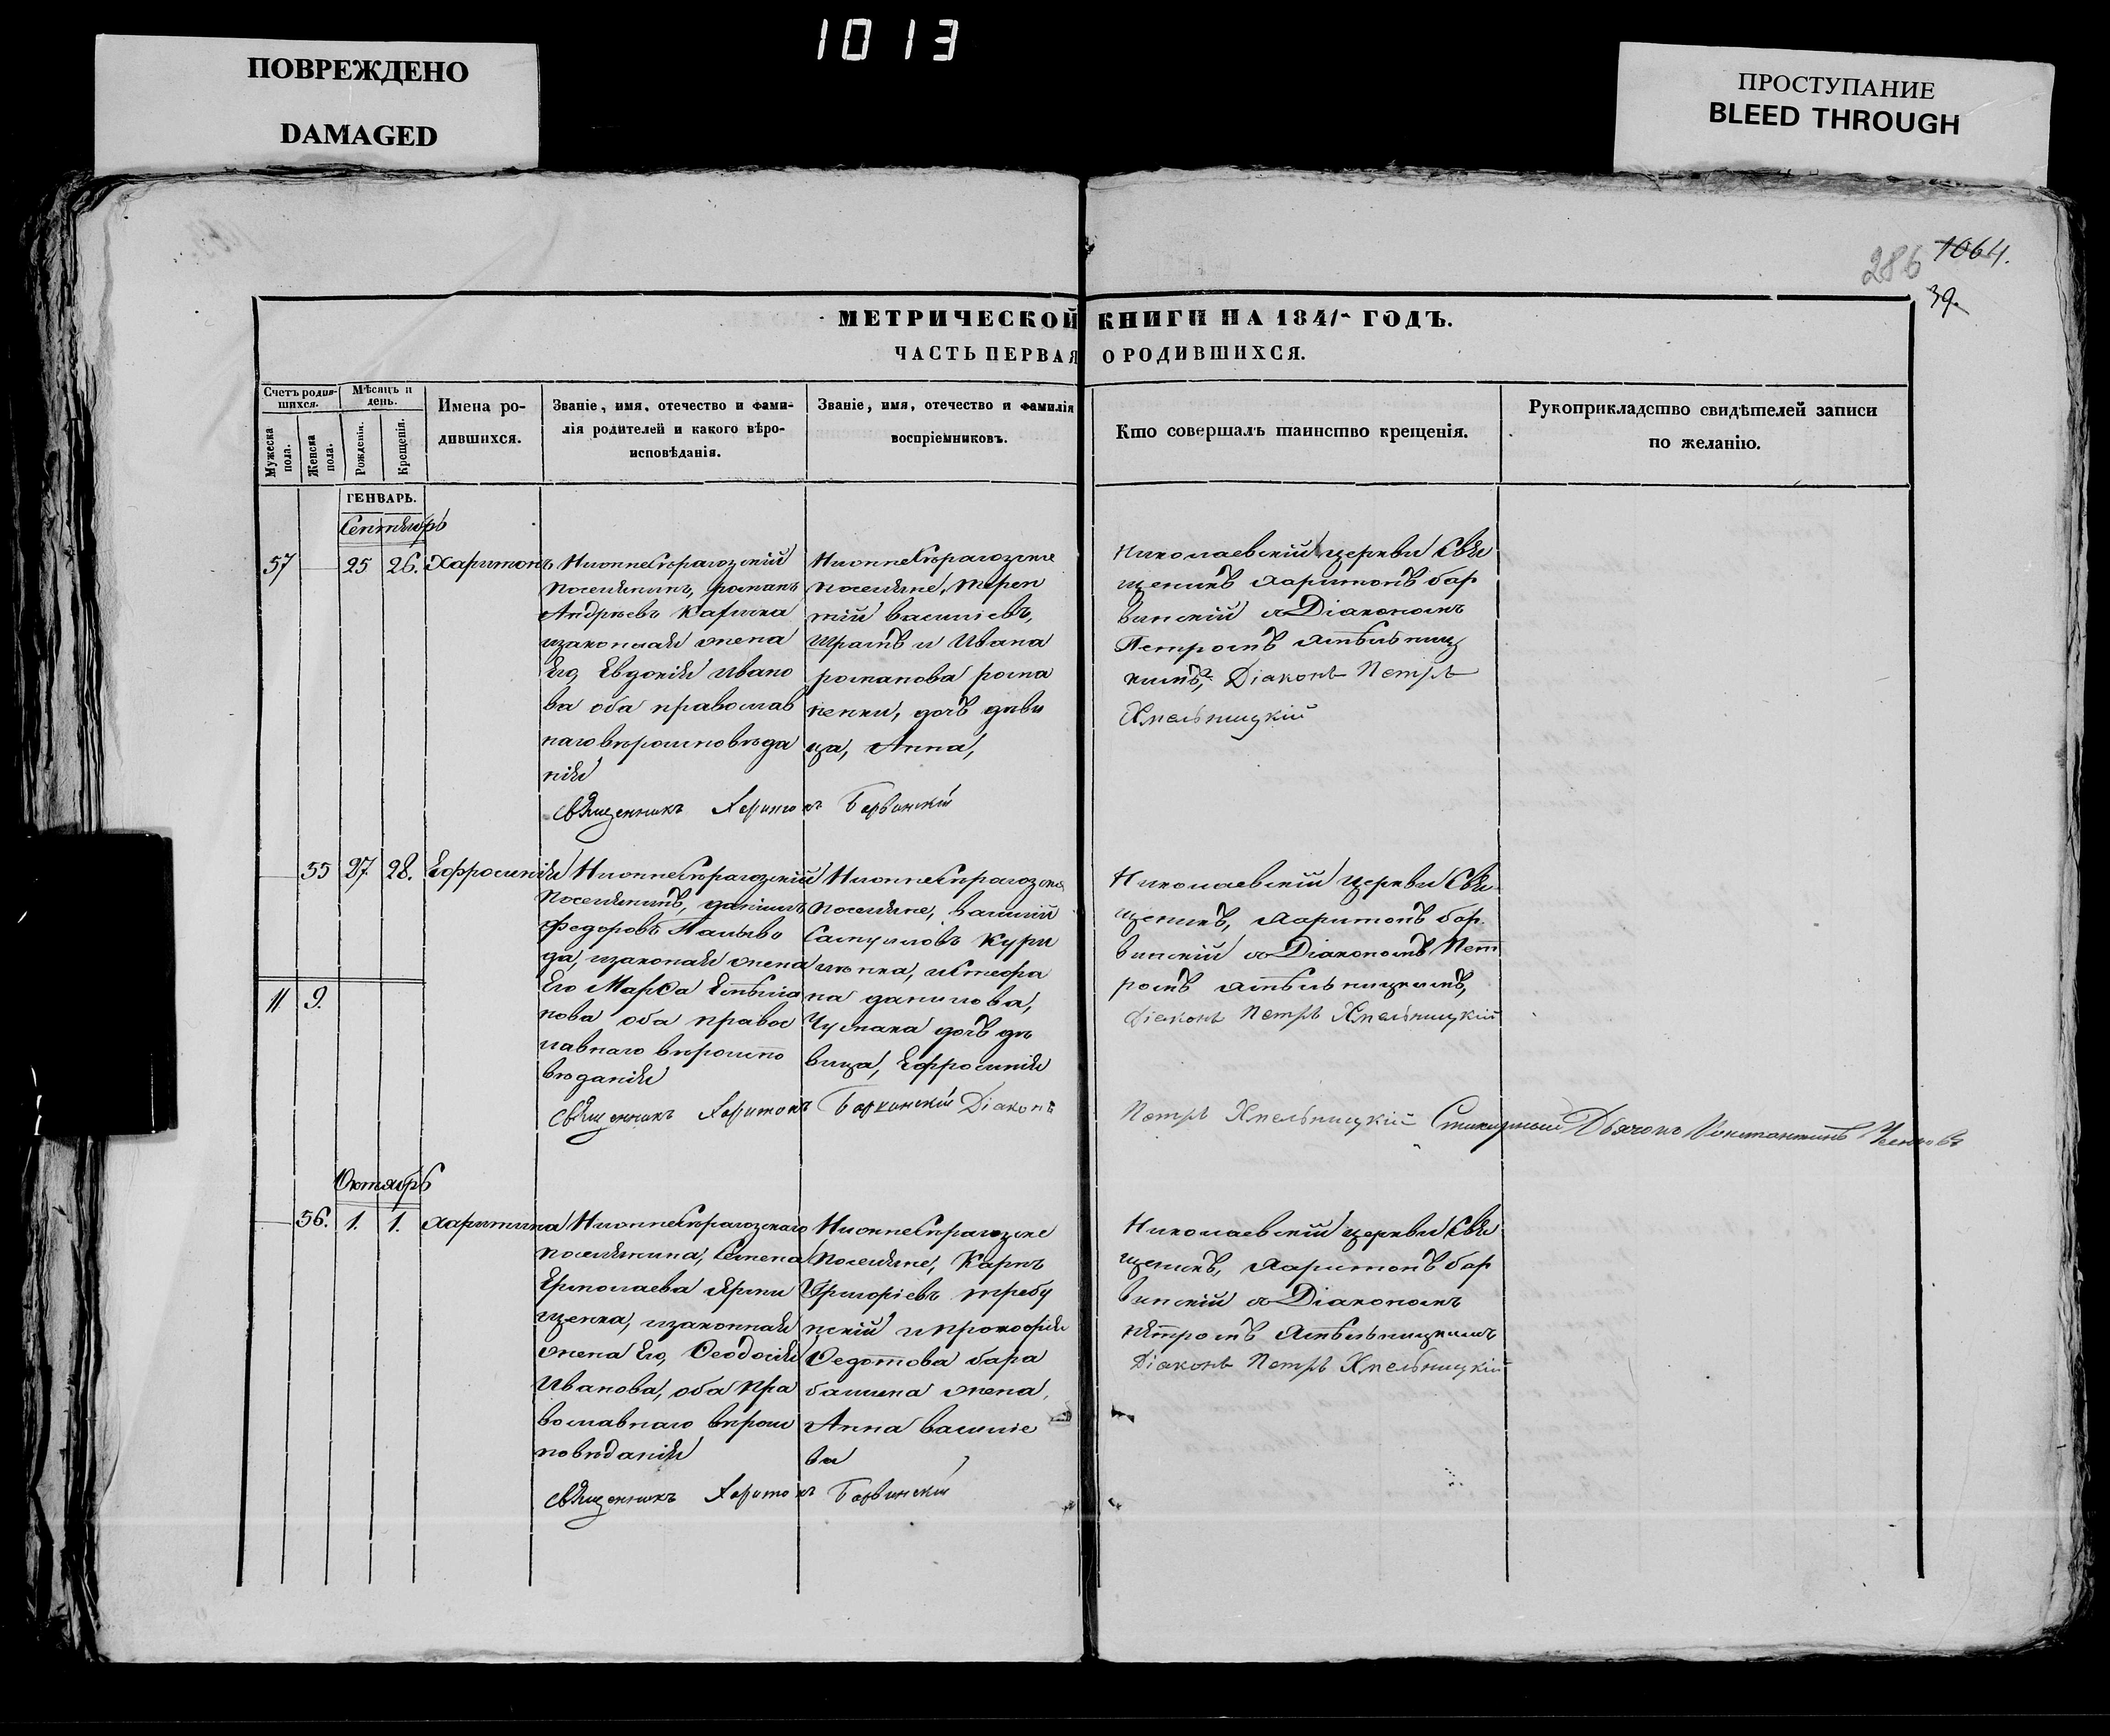 1013
ПОВРЕЖДЕНО
DAMAGED
ПРОСТУПАНИЕ
BLEED THROUGH
286 1064.
39.
МЕТРИЧЕСКОЙ КНИГИ НА 1841 ГОДЪ.
ЧАСТЬ ПЕРВАЯ О РОДИВШИХСЯ.
Счетъ родив-
шихся.
Мужеска
пола.
Женска
пола.
Мѣсяцъ и
день.
Рожденія.
Крещенія.
Имена ро-
дившихся.
Званіе, имя, отечество и фами-
лія родителей и какого вѣро-
исповѣданія.
Званіе, имя, отечество и фамилія
воспріемниковъ.
Кто совершалъ таинство крещенія.
Рукоприкладство свидѣтелей записи
по желанію.
ГЕНВАРЬ.
Сентябрь
57 25 26. Харитонъ
Нижнесѣрагозскій
поселянинъ, романъ
Андрѣевъ
изаконная жена
Его, Евдокія ивано
ва оба православ
наго вѣроисповѣда
нія
Нижнесѣрагозскіе
поселяне, терен
тій василіевъ,
и Ивана
романова рома
ненки, дочь дѣви
ца, Анна,
Николаевскій церкви Свя
щеникъ Харитонъ бар
винскій съ Діакономъ
Петромъ Хмѣльниц
кимъ, Діаконъ Петръ
Хмельницкій
Священникъ Харитонъ Барвинскій
55 27 28. Ефросинія
Нижнесѣрагозскій
поселянинъ, даніилъ
федоровъ Паливо
да, изаконая жена
Его Марѳа
нова оба правос
лавнаго вѣроиспо
вѣданія
Нижнесѣрагозскіе
поселяне, василій
Самуиловъ Кури
данилова,
Чумака дочь дѣ
вица, Ефросинія
Николаевскій церкви Свя
щеникъ, Харитонъ бар
винскій съ Діакономъ Пет
ромъ Хмѣльницкимъ,
Діаконъ Петръ Хмельницкій
11 9.
Священникъ Харитонъ Барвинскій Діаконъ
Петръ Хмельницкій Стихарный Дьячокъ Константинъ
Октябрь
56. 1. 1. Харитина
Нижнесѣрагозскаго
поселянина, Семена
Ермолаева Ярми
щенка, изаконная
жена Его, Ѳеодосія
Иванова, оба пра
вославнаго вѣроис
повѣданія
Нижнесѣрагозскіе
поселяне, Карпъ
Григоріевъ требу
нскій
Ѳедотова бара
башина жена,
Анна василіе
ва
Николаевскій церкви Свя
щеникъ, Харитонъ бар
винскій съ Діакономъ
петромъ Хмѣльницкимъ
Діаконъ Петръ Хмельницкій
Священникъ Харитонъ Барвинскій